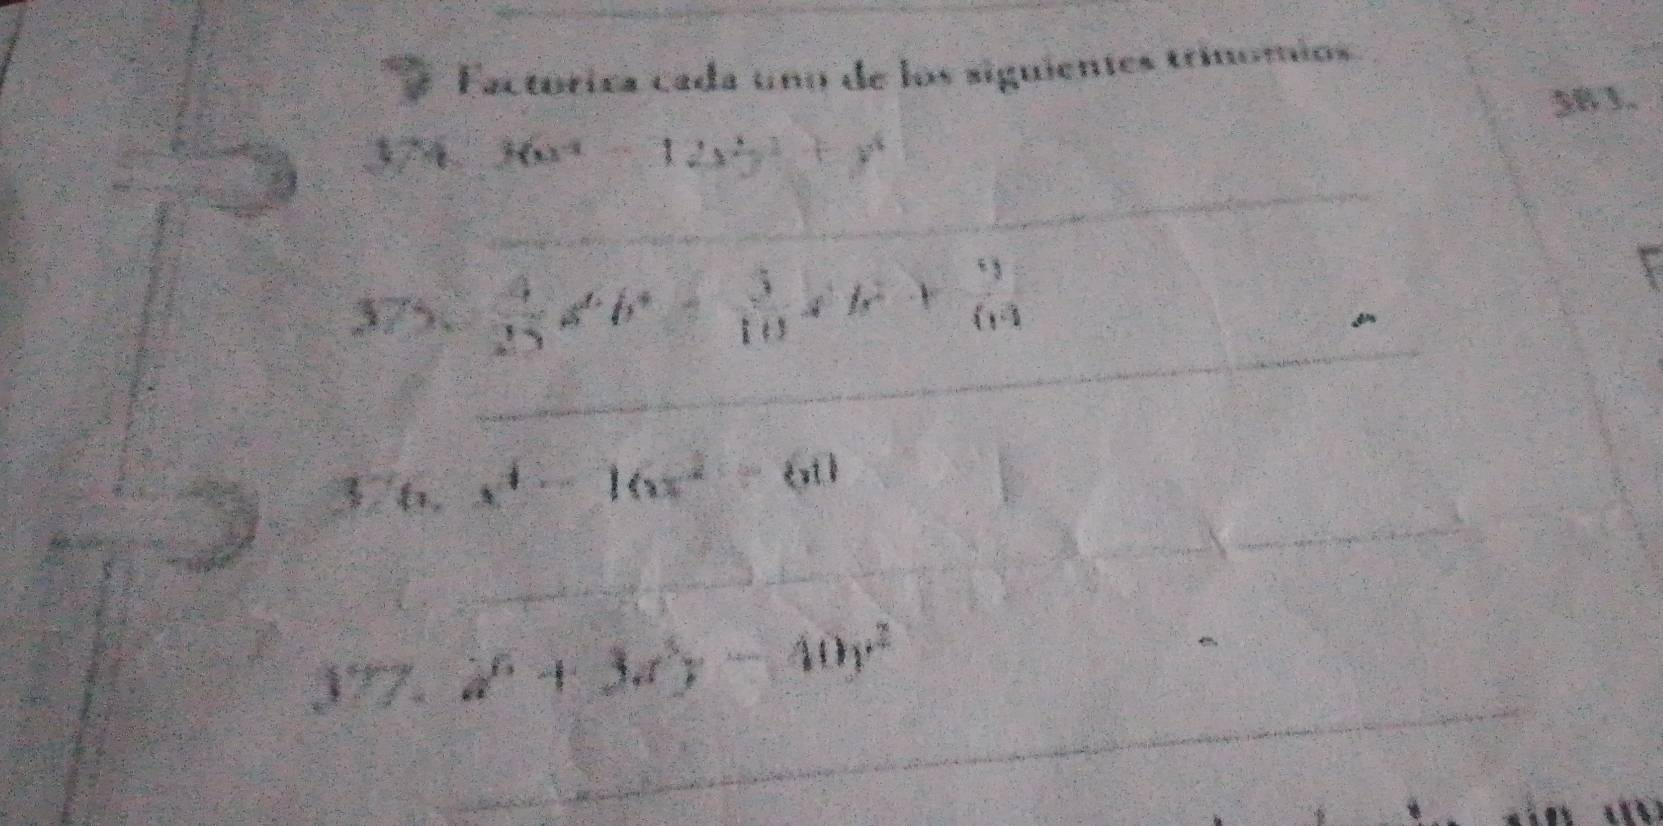 Factoriza cada uno de los siguientes trinomios.
383.
374. 36x⁴ - 12x²y² + y⁴
375. 4/25 a⁶b⁴ - 3/10 a³b² + 9/64
376. x⁴ - 16x² - 60
377. a⁶ + 3a³y - 40y²
sin